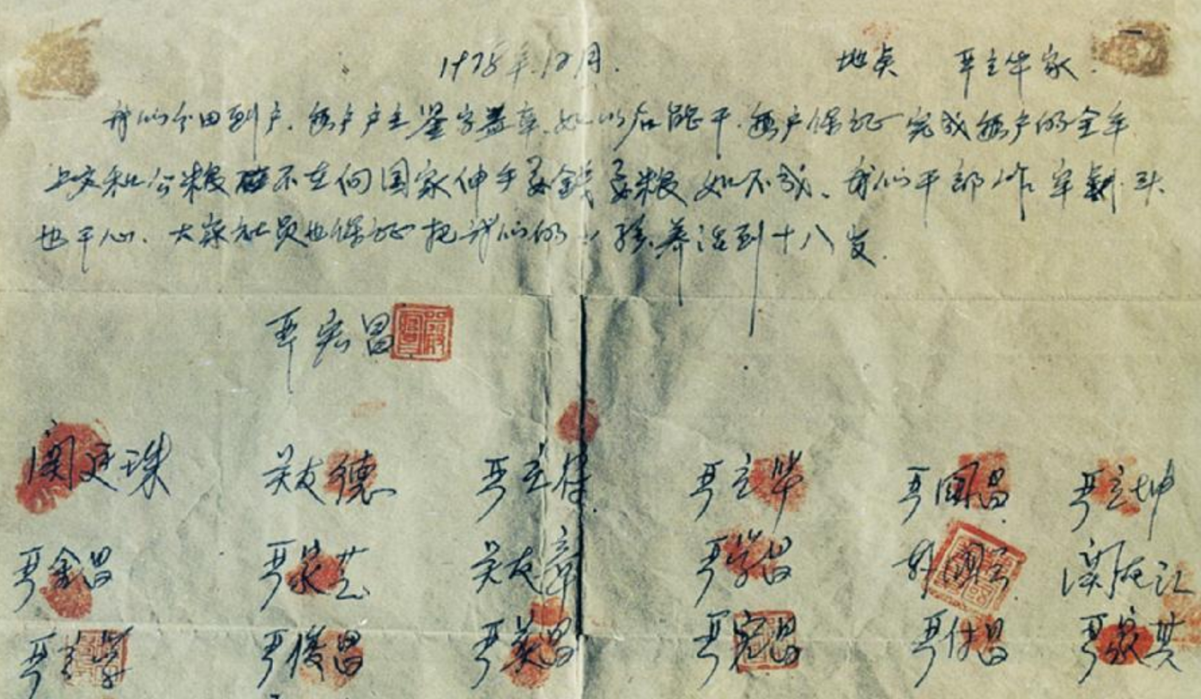 1978年12月. 地点 严立华家.
我们分田到户.每户户主鉴字盖章.如以后能干.每户保证完成每户的全年
上交和公粮不在向国家伸手要钱要粮如不成、我们干部作牢剎头
也干心、大家社员也保证把我们的小孩养活到十八岁.
严宏昌
关廷珠 关友德 严立符 严立华 严国昌 严立坤
严金昌 严家芝 关友章 严学昌 韩国云 关友江
严立学 严俊昌 严美昌 严宏昌 严付昌 严家其